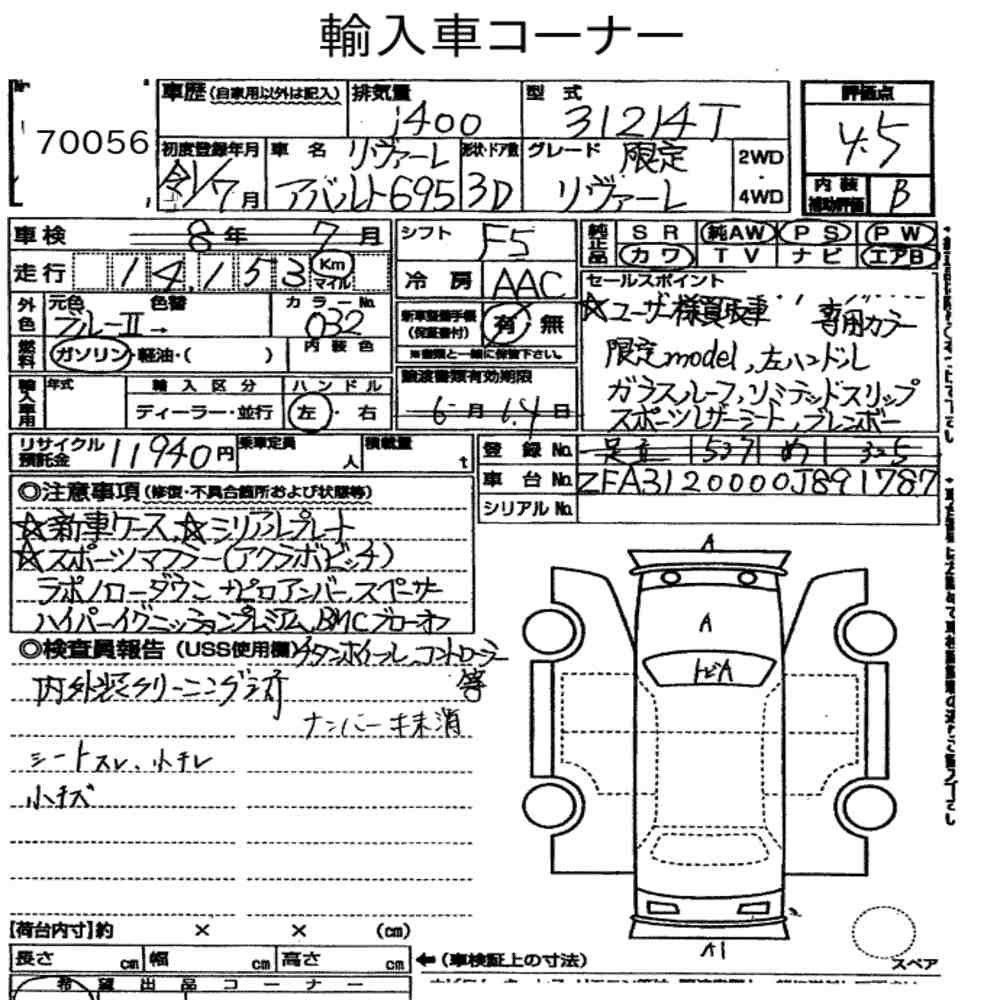 輸入車コーナー
70056
車歴(自家用以外は記入) 排気量 型式 評価点
1400 31214T 4.5
初度登録年月 車名 リヴァーレ 形状・ドア数 グレード 限定 2WD ・ 4WD
令1/7月 アバルト695 3D リヴァーレ
内装補助評価 B
車検 8年 7月 シフト F5 純正品 SR 純AW PS PW
カワ TV ナビ エアB
走行 14,153 Km マイル 冷房 AAC
セールスポイント
外色 元色 色替 カラーNo.
ブルーⅡ→ 032
新車整備手帳(保証書付) 有・無
※書類と一緒に保管下さい。
☆ユーザー様買取車 専用カラー
燃料 ガソリン・軽油・( ) 内装色
限定model,左ハンドル
輸入車用 年式 輸入区分 ハンドル
ディーラー・並行 左・右
譲渡書類有効期限
6月 14日
ガラスルーフ,リミテッドスリップ
スポーツレザーシート,ブレンボー
リサイクル預託金 11940円 乗車定員 人 積載量 t
登録No. 足立 537 め 325
車台No. ZFA3120000J891787
シリアルNo.
◎注意事項(修復・不具合箇所および状態等)
☆新車ケース,☆シリアルプレート
☆スポーツマフラー(アクラポビッチ)
ラポノローダウン ナピロアンバースペーサー
ハイパーイグニッションプレミアム,BMCブローオフ
◎検査員報告(USS使用欄) チタンホイール,コントローラー
等
内外装クリーニング済
ナンバーキ未消
シートスレ、小キレ
小キズ
A
A
トビA
A1
スペア
【荷台内寸】約 × × (cm)
長さ cm 幅 cm 高さ cm ←(車検証上の寸法)
希望出品コーナー